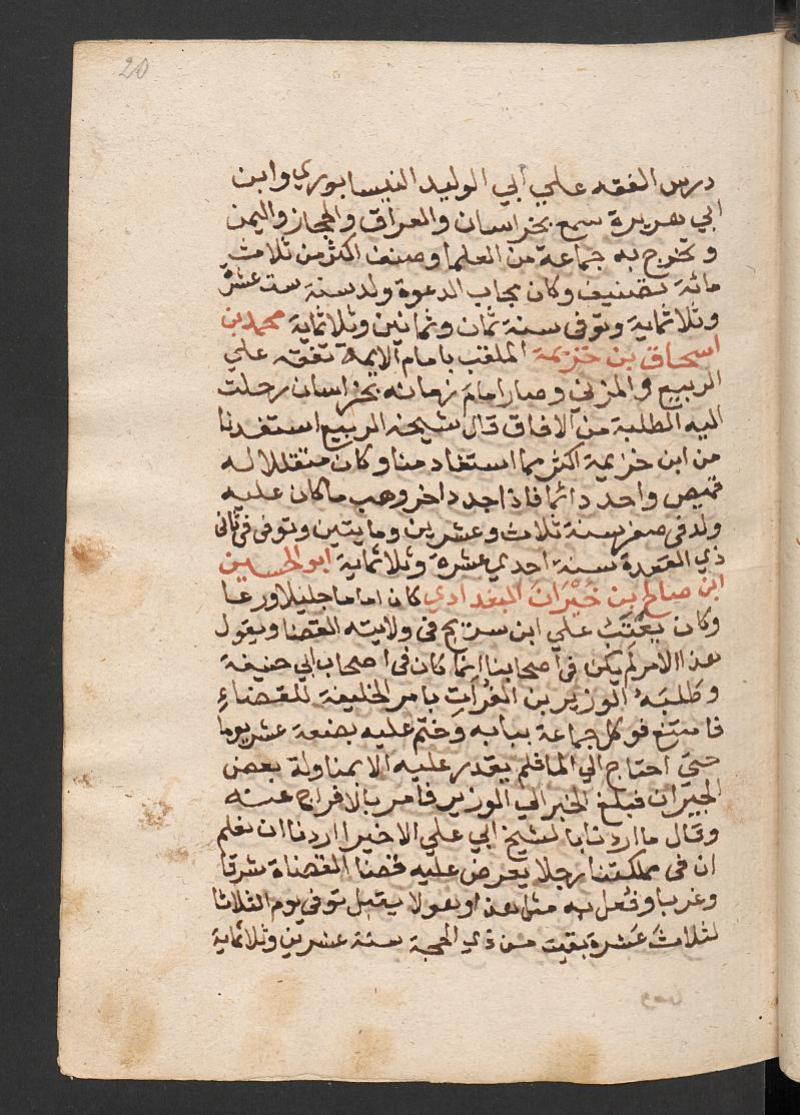 20
درس الفقه علي ابي الوليد النيسابوري وابن
ابي هريرة سمع بخراسان والعراق والحجاز واليمن
وتخرج به جماعة من العلما وصنف اكثر من ثلاث
مائة تصنيف وكان مجاب الدعوة ولد سنة ست عشرة
وثلاثماية وتوفى سنة ثمان وثمانين وثلاثماية محمد بن
اسحاق بن خزيمة الملقب بامام الايمة تفقه علي
الربيع والمزني وصار امام زمانه بخراسان رحلت
اليه الطلبة من الافاق قال شيخه الربيع استفدنا
من ابن خزيمة اكثر مما استفاد منا وكان متقللا له
قميص واحد دائما فاذا جدد اخر وهب ما كان عليه
ولد فى صفر سنة ثلاث وعشرين ومايتين وتوفى فى ثانى
ذي القعدة سنة احدي عشرة وثلاثماية ابو الحسين
ابن صالح بن خَيْرَانَ البغدادي كان اماما جليلا ورعا
وكان يعْتَبُ علي ابن سريج فى ولايته القضا ويقول
هذا الامر لم يكن فى اصحابنا انما كان فى اصحاب ابي حنيفة
وطلبَهُ الوزير بن الفُرَاتِ بامر الخليفة للقضاءِ
فامتنع فوكل جماعة ببابه وختم عليه بضعة عشر يوما
حتيّ احتاج الي الما فلم يقدر عليه الا بمناولة بعض
الجيران فبلغ الخبر الي الوزير فامر بالافراج عنه
وقال ما اردنا بالشيخ ابي علي الا خيرا اردنا ان نعلم
ان فى مملكتنا رجلا يعرض عليه قضا القضاة شرقا
وغربا وفُعل به مثل هذا وهو لا يقبل توفي يوم الثلاثا
لثلاثَ عَشرة بقيت من ذي الحجة سنة عشرين وثلاثماية